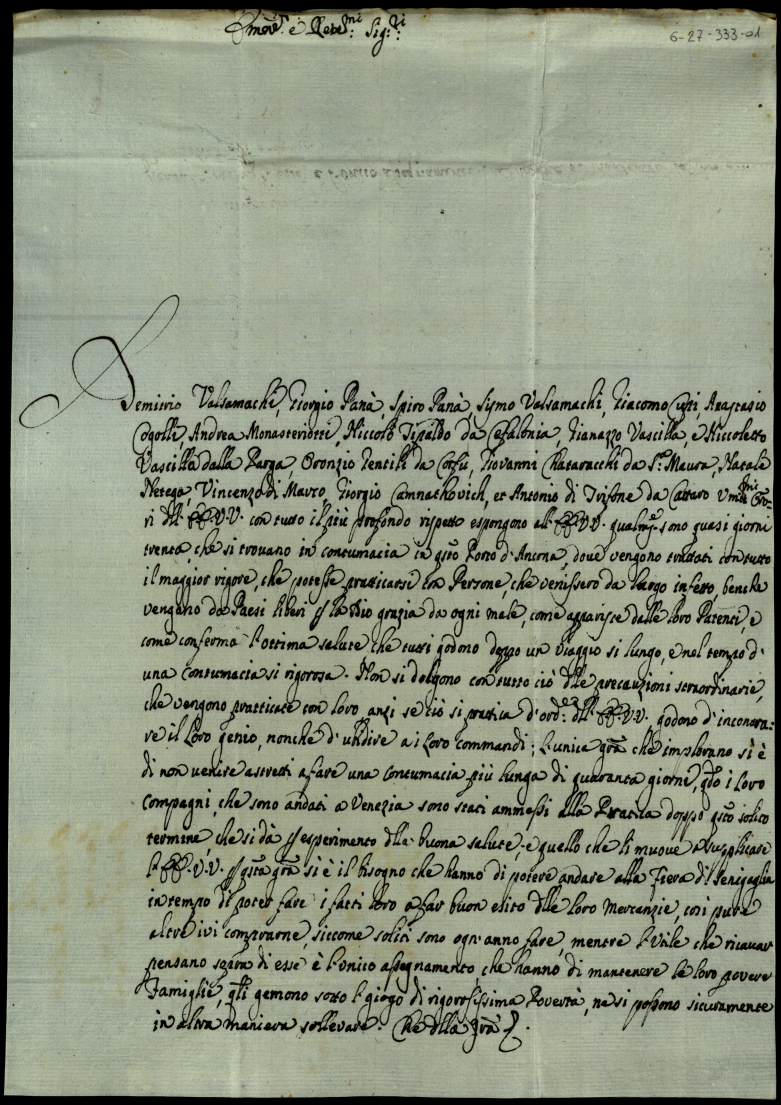 6-27-333-01
Emi. e Revmi: Sig:ri
Demitrio Valsamachi, Giorgio Panà, Spiro Panà, Simo Valsamachi, Giacomo Anastasio
Cogolli, Andrea Monasterioti, Niccolò Tipaldo da Cefalonia, Gianazzo Vascilla, e Niccoletto
Vascilla dalla Parga, Oronzio Gentili da Corfù, Giovanni Chataracchi da S.ta Maura, Natale
Netega, Vincenzo di Marco, Giorgio Camnatkovich, et Antonio di Trifone da Cattaro Umilmi Oro=
ri dll' EE. VV. con tutto il più profondo rispetto espongono all' EE. VV. qualmte sono quasi giorni
trenta, che si trovano in contumacia in qsto Porto d'Ancona, dove vengono trattati con tutto
il maggior rigore, che potesse pratticarsi con Persone, che venissero da luogo infetto, benche
vengano da Paesi liberi p la Dio grazia da ogni male, come apparisce dalle loro Patenti, e
come conferma l'ottima salute che tutti godono doppo un viaggio si lungo, e nel tempo d'
una contumacia si rigorosa. Non si dolgono con tutto ciò dlle precauzioni straordinarie,
che vengono pratticate con loro anzi se ciò si prattica d'ord:e dll' EE. VV. godono d'incontra=
re il Loro genio, nonche d'ubdire a i Loro commandi; l'unica gra che implorano si è
di non venire astretti a fare una contumacia più lunga di quaranta giorni, qdo i Loro
compagni, che sono andati a Venezia sono stati ammessi alla Prattica doppo qsto solito
termine, che si dà p esperimento dlla buona salute, e quello che li muove a supplicare
l' EE. VV. p qsta gra si è il bisogno che hanno di potere andare alla Fiera di Senigaglia
in tempo di poter fare i fatti loro a far buon esito dlle Loro Mercanzie, così pure
altre ivi comprarne, siccome soliti sono ogn'anno fare, mentre l'utile che ricavar
pensano sopra di esse è l'unico assegnamento che hanno di mantenere le loro povere
Famiglie, qli gemono sotto l giogo di rigorosissima Povertà, ne si possono sicuramente
in altra maniera sollevare. Che dlla gra